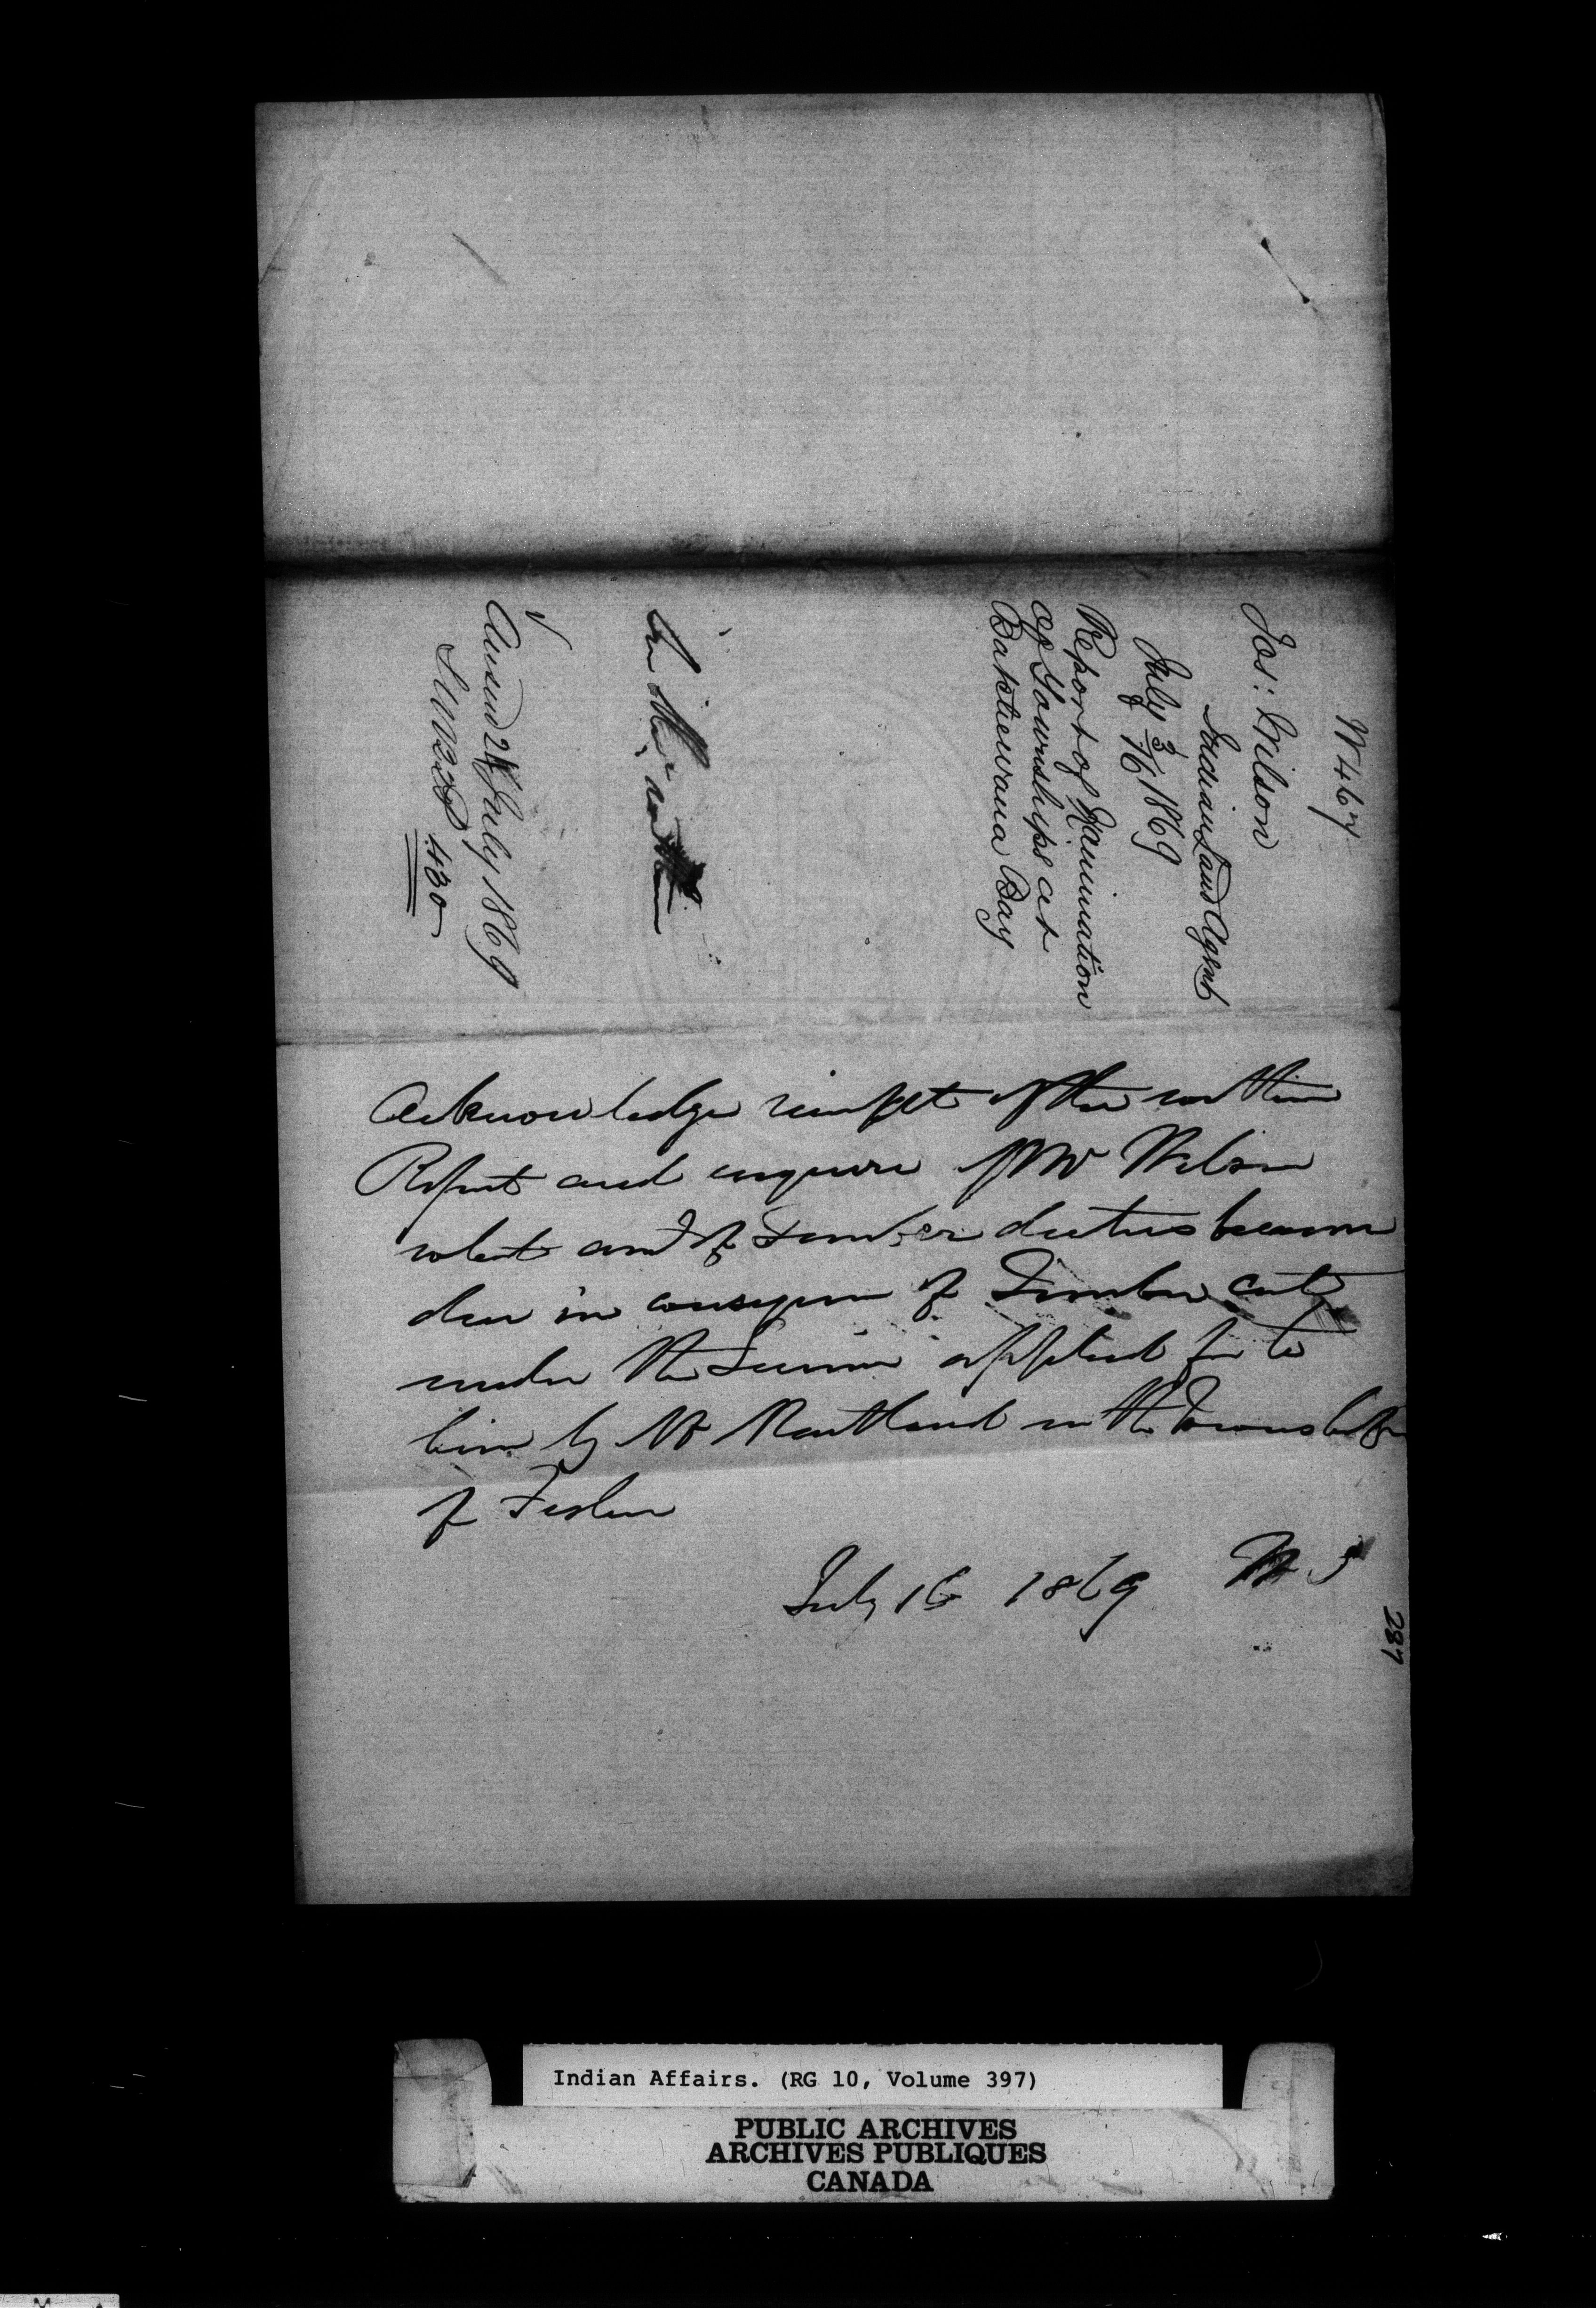 W 467
Jos: Wilson
Indian Land Agent
July 3/16 1869
Report of Examination
of Townships at
Batchewana Bay
Answd 21 July 1869
430
Acknowledge receipt of the within
Report and enquire of Mr Wilson
what amt of Timber duties became
due in consequence of Timber cut
under the License applied for to
him by Mr Maitland in the Township
of Fisher
July 16 1869 W. S
287
Indian Affairs. (RG 10, Volume 397)
PUBLIC ARCHIVES
ARCHIVES PUBLIQUES
CANADA